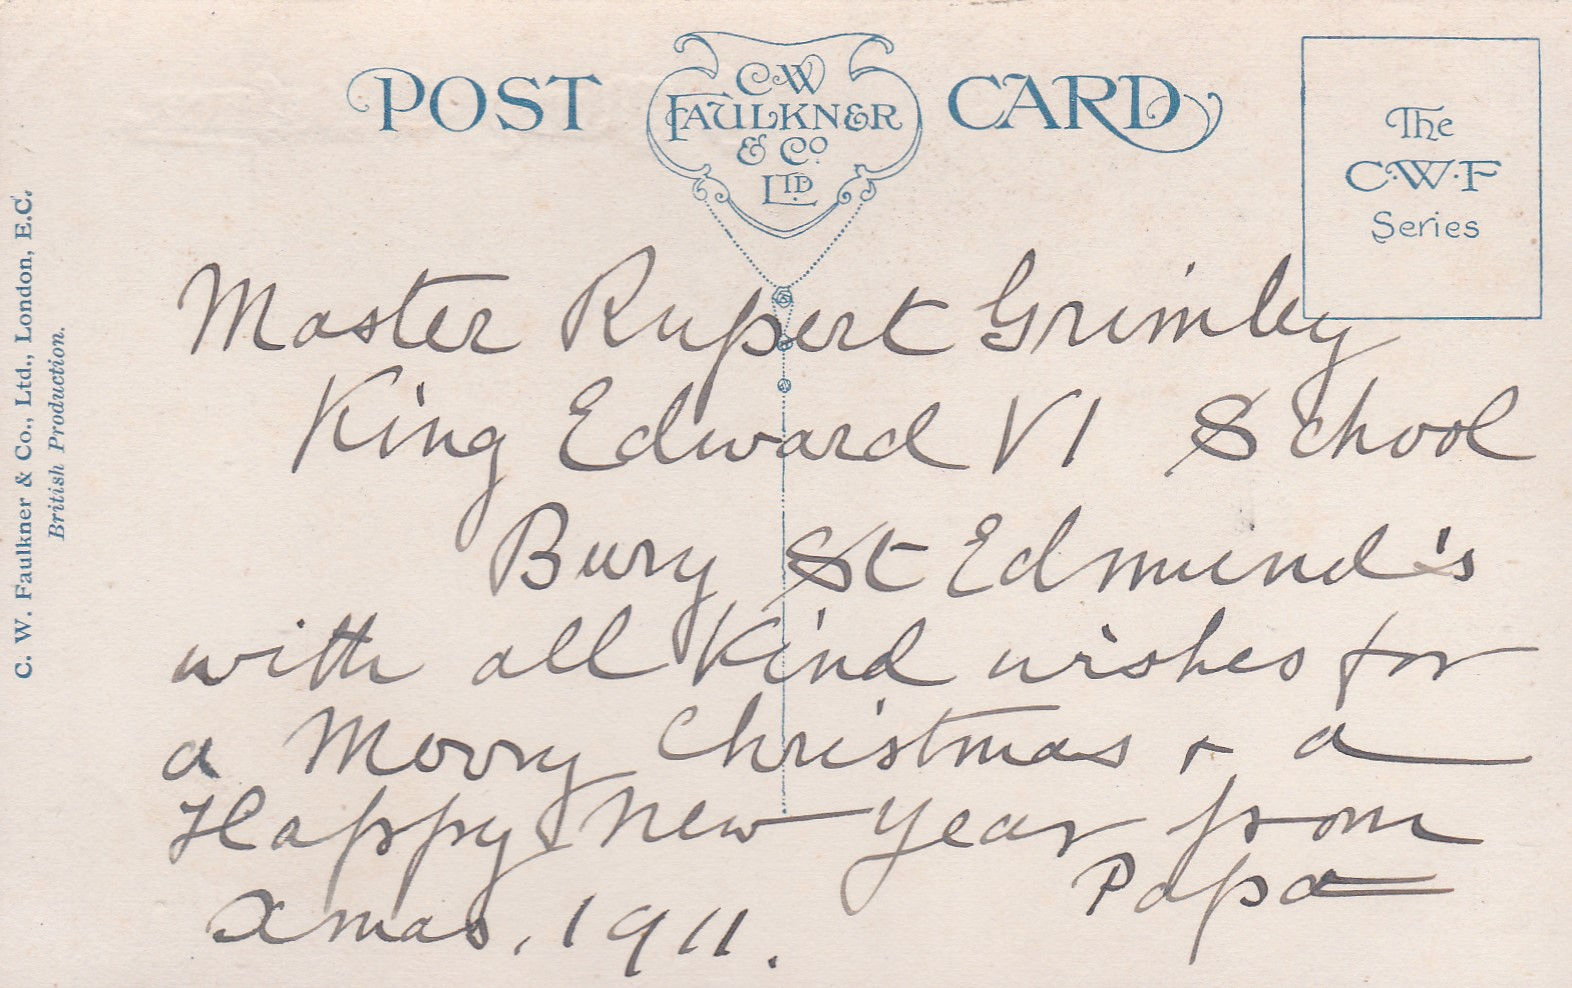 POST CARD
C W
FAULKNER
& Co
LTD
The
C·W·F
Series
C. W. Faulkner & Co., Ltd., London, E.C.
British Production.
Master Rupert Grimley
King Edward VI School
Bury St Edmund's
with all Kind wishes for
a Merry Christmas + a
Happy New Year from
Papa
Xmas, 1911.